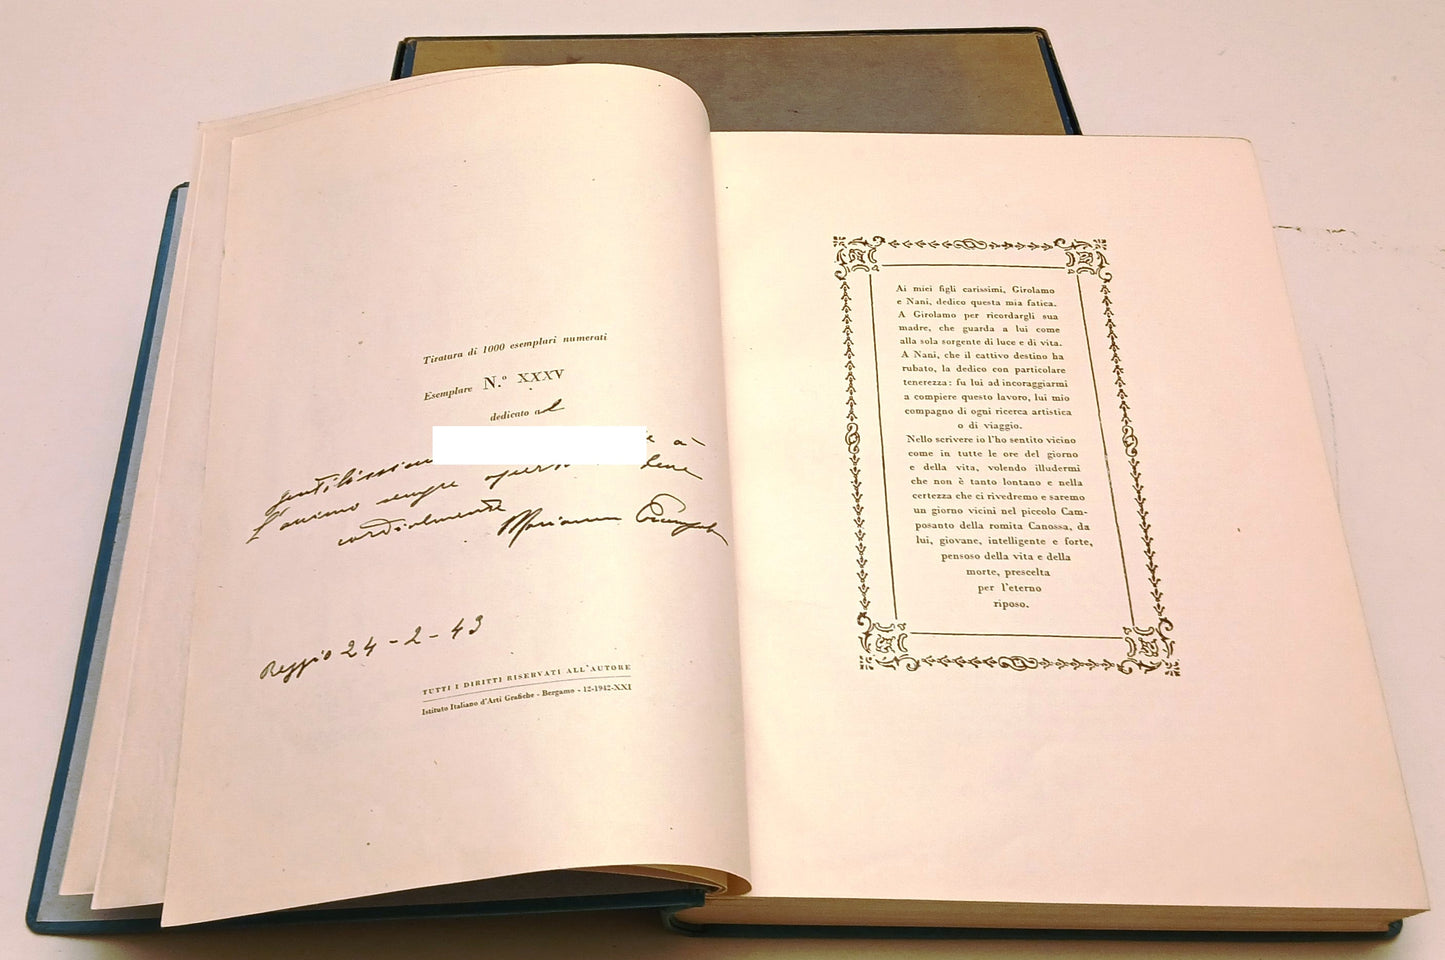 Tiratura di 1000 esemplari numerati
Esemplare N.° XXXV
dedicato al
gentilissimo e a
l'animo sempre aperto bene
cordialmente
Reggio 24-2-43
TUTTI I DIRITTI RISERVATI ALL'AUTORE
Istituto Italiano d'Arti Grafiche - Bergamo - 12-1942-XXI
Ai miei figli carissimi, Girolamo
e Nani, dedico questa mia fatica.
A Girolamo per ricordargli sua
madre, che guarda a lui come
alla sola sorgente di luce e di vita.
A Nani, che il cattivo destino ha
rubato, la dedico con particolare
tenerezza: fu lui ad incoraggiarmi
a compiere questo lavoro, lui mio
compagno di ogni ricerca artistica
o di viaggio.
Nello scrivere io l'ho sentito vicino
come in tutte le ore del giorno
e della vita, volendo illudermi
che non è tanto lontano e nella
certezza che ci rivedremo e saremo
un giorno vicini nel piccolo Cam-
posanto della romita Canossa, da
lui, giovane, intelligente e forte,
pensoso della vita e della
morte, prescelta
per l'eterno
riposo.